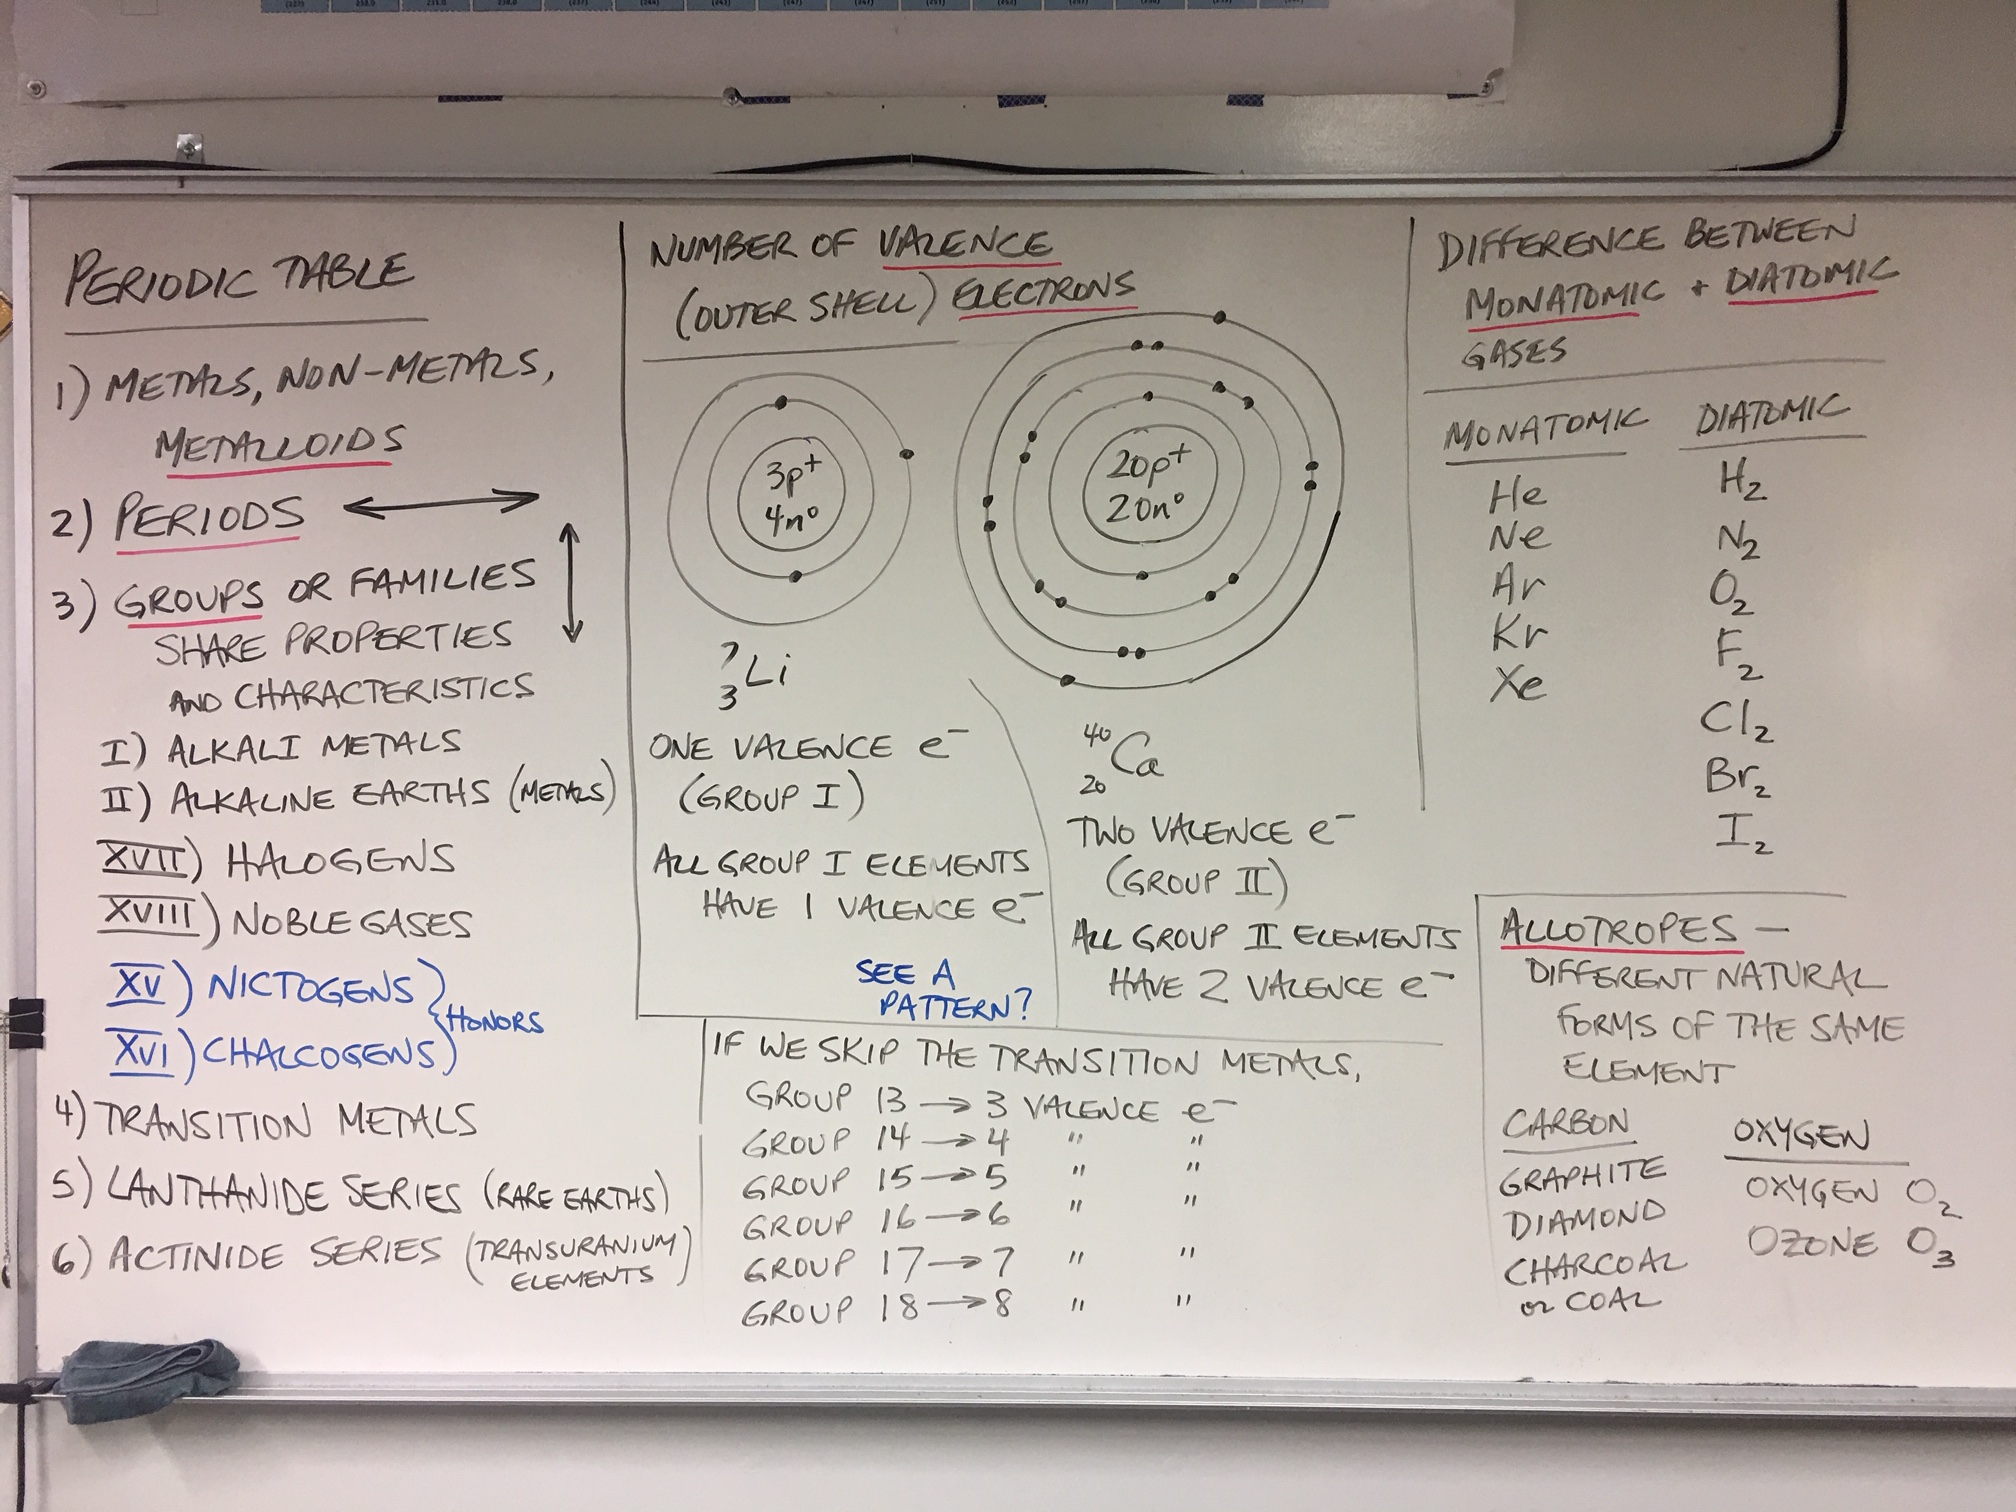 PERIODIC TABLE
1) METALS, NON-METALS,
METALLOIDS
2) PERIODS
3) GROUPS OR FAMILIES
SHARE PROPERTIES
AND CHARACTERISTICS
I) ALKALI METALS
II) ALKALINE EARTHS (METALS)
XVII) HALOGENS
XVIII) NOBLE GASES
XV) NICTOGENS
XVI) CHALCOGENS
HONORS
4) TRANSITION METALS
5) LANTHANIDE SERIES (RARE EARTHS)
6) ACTINIDE SERIES (TRANSURANIUM
ELEMENTS)
NUMBER OF VALENCE
(OUTER SHELL) ELECTRONS
3p⁺
4n⁰
⁷₃Li
ONE VALENCE e⁻
(GROUP I)
ALL GROUP I ELEMENTS
HAVE 1 VALENCE e⁻
20p⁺
20n⁰
⁴⁰₂₀Ca
TWO VALENCE e⁻
(GROUP II)
ALL GROUP II ELEMENTS
HAVE 2 VALENCE e⁻
SEE A
PATTERN?
IF WE SKIP THE TRANSITION METALS,
GROUP 13 → 3 VALENCE e⁻
GROUP 14 → 4 " "
GROUP 15 → 5 " "
GROUP 16 → 6 " "
GROUP 17 → 7 " "
GROUP 18 → 8 " "
DIFFERENCE BETWEEN
MONATOMIC + DIATOMIC
GASES
MONATOMIC
He
Ne
Ar
Kr
Xe
DIATOMIC
H₂
N₂
O₂
F₂
Cl₂
Br₂
I₂
ALLOTROPES —
DIFFERENT NATURAL
FORMS OF THE SAME
ELEMENT
CARBON
GRAPHITE
DIAMOND
CHARCOAL
or COAL
OXYGEN
OXYGEN O₂
OZONE O₃